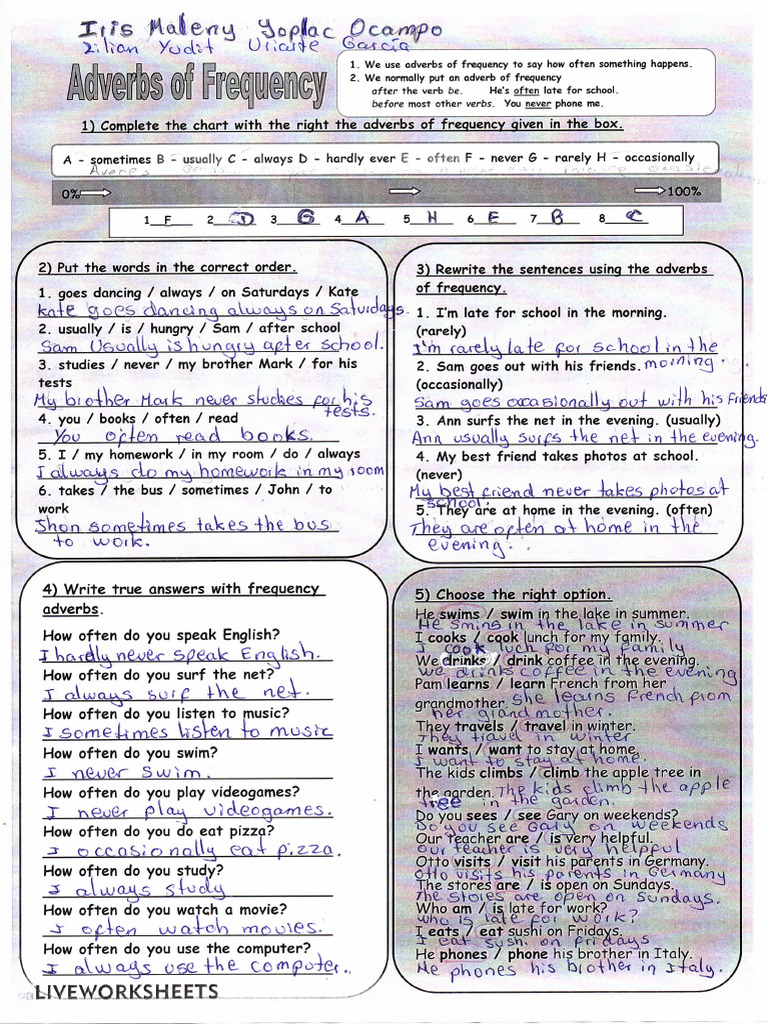 Iris Maleny Yoplac Ocampo
Lilian Yudit Uriarte García
Adverbs of Frequency
1. We use adverbs of frequency to say how often something happens.
2. We normally put an adverb of frequency
after the verb be. He's often late for school.
before most other verbs. You never phone me.
1) Complete the chart with the right the adverbs of frequency given in the box.
A - sometimes B - usually C - always D - hardly ever E - often F - never G - rarely H - occasionally
0% 100%
1 F 2 D 3 G 4 A 5 H 6 E 7 B 8 C
2) Put the words in the correct order.
1. goes dancing / always / on Saturdays / Kate
Kate goes dancing always on Saturdays.
2. usually / is / hungry / Sam / after school
Sam Usually is hungry after school.
3. studies / never / my brother Mark / for his
tests
My brother Mark never studies for his
tests.
4. you / books / often / read
You often read books.
5. I / my homework / in my room / do / always
I always do my homework in my room
6. takes / the bus / sometimes / John / to
work
Jhon sometimes takes the bus
to work.
3) Rewrite the sentences using the adverbs
of frequency.
1. I'm late for school in the morning.
(rarely)
I'm rarely late for school in the
morning.
2. Sam goes out with his friends.
(occasionally)
Sam goes occasionally out with his friends
3. Ann surfs the net in the evening. (usually)
Ann usually surfs the net in the evening.
4. My best friend takes photos at school.
(never)
My best friend never takes photos at
school.
5. They are at home in the evening. (often)
They are often at home in the
evening.
4) Write true answers with frequency
adverbs.
How often do you speak English?
I hardly never speak English.
How often do you surf the net?
I always surf the net.
How often do you listen to music?
I sometimes listen to music
How often do you swim?
I never swim.
How often do you play videogames?
I never play videogames.
How often do you do eat pizza?
I occasionally eat pizza.
How often do you study?
I always study
How often do you watch a movie?
I often watch movies.
How often do you use the computer?
I always use the computer.
5) Choose the right option.
He swims / swim in the lake in summer.
He smins in the lake in summer
I cooks / cook lunch for my family.
I cook luch for my family
We drinks / drink coffee in the evening.
we drinks coffee in the evening
Pam learns / learn French from her
grandmother. She learns French from
her grandmother.
They travels / travel in winter.
They travel in winter
I wants / want to stay at home
I want to stay at home.
The kids climbs / climb the apple tree in
the garden. The kids climb the apple
tree in the garden.
Do you sees / see Gary on weekends?
Do you see Gary on weekends
Our teacher are / is very helpful.
Our teacher is very helpful
Otto visits / visit his parents in Germany.
Otto visits his parents in Germany
The stores are / is open on Sundays.
The stores are open on sundays.
Who am / is late for work?
who is late for work?
I eats / eat sushi on Fridays.
I eat sushi on fridays
He phones / phone his brother in Italy.
He phones his brother in Italy.
LIVEWORKSHEETS